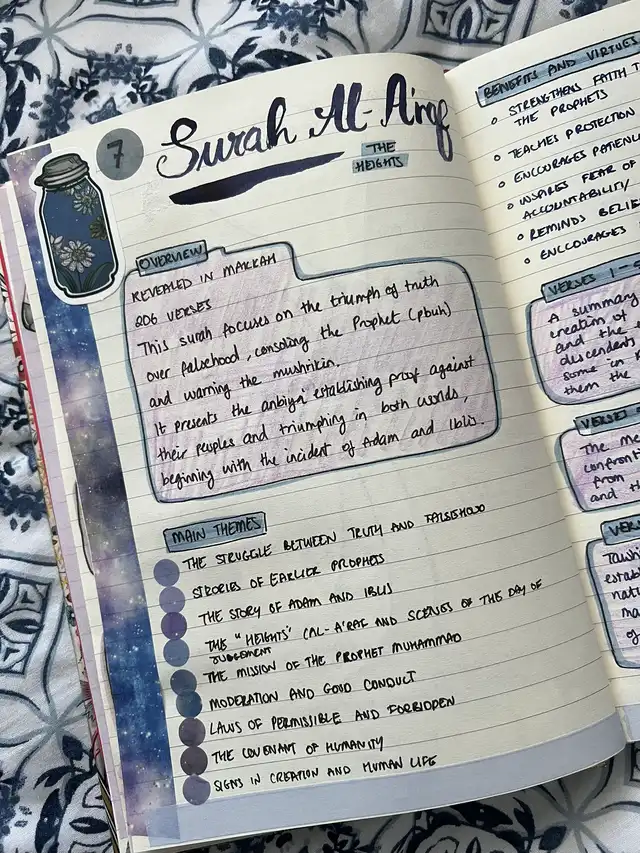 7
Surah Al-A'raf
THE
HEIGHTS
OVERVIEW
REVEALED IN MAKKAH
206 VERSES
This surah focuses on the triumph of truth
over falsehood, consoling the Prophet (pbuh)
and warning the mushrikin.
It presents the anbiya' establishing proof against
their peoples and triumphing in both worlds,
beginning with the incident of Adam and Iblis.
MAIN THEMES
THE STRUGGLE BETWEEN TRUTH AND FALSEHOOD
STRORIES OF EARLIER PROPHETS
THE STORY OF ADAM AND IBLIS
THE "HEIGHTS" (AL-A'RAF AND SCENES OF THE DAY OF
JUDGEMENT
THE MISSION OF THE PROPHET MUHAMMAD
MODERATION AND GOOD CONDUCT
LAWS OF PERMISSIBLE AND FORBIDDEN
THE COVENANT OF HUMANITY
SIGNS IN CREATION AND HUMAN LIFE
BENEFITS AND VIRTUES
STRENGTHENS FAITH
THE PROPHETS
TEACHES PROTECTION
ENCOURAGES
INSPIRES FEAR OF
ACCOUNTABILITY
REMINDS
ENCOURAGES
VERSES 1-5
A summary
creation of
and the
descendents
some in
them the
VERSES
The
from
and